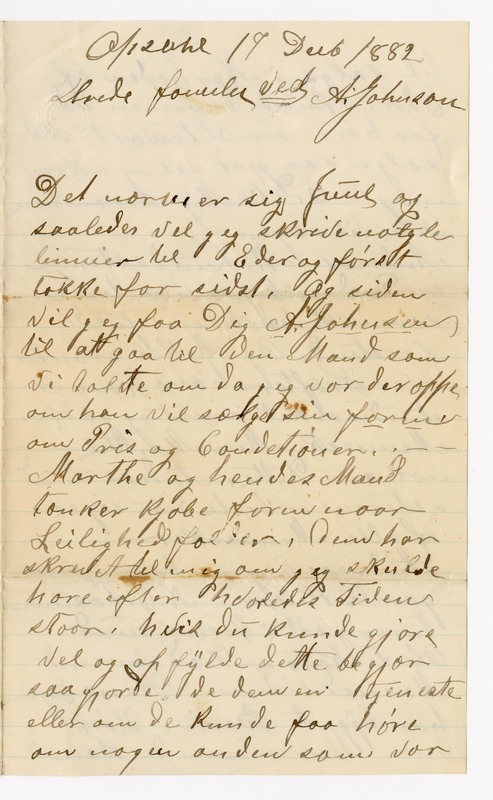 Opdahl 17 Decb 1882
Ærede familie ved A. Johnson
Det nærmer sig Juul og
saaledes vil jeg skrive nogle
linnier til Eder og först
takke for sidst. Og siden
vil jeg faa Dig A. Johnson
til att gaa til den Mand som
vi talte om da jeg var der oppe
om han vil sælge sin farm
om Pris og Condetioner. . —
Marthe og hendes Mand
tænker kjøbe farm naar
Leilighed falder, Dem har
skrevet til mig om jeg skulde
høre efter hvoreds Tiden
staar. hvis du kunde gjøre
vel og opfylde dette begjær
saa gjorde de dem en tjeneste
eller om de kunde faa høre
om nogen anden som var